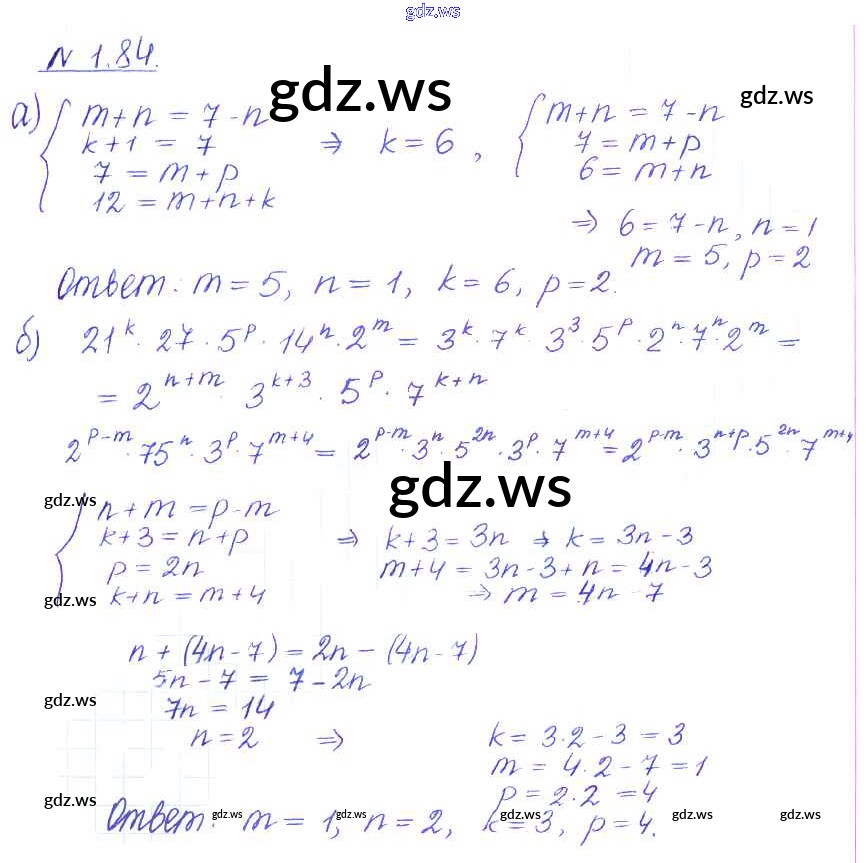 gdz.ws
N 1.84.
gdz.ws
gdz.ws
а) { m+n = 7-n
k+1 = 7
7 = m+p
12 = m+n+k
⇒ k=6 ,
{ m+n = 7-n
7 = m+p
6 = m+n
⇒ 6=7-n, n=1
m=5, p=2
Ответ: m=5, n=1, k=6, p=2.
б) 21^k · 27 · 5^p · 14^n · 2^m = 3^k · 7^k · 3^3 · 5^p · 2^n · 7^n · 2^m =
= 2^{n+m} · 3^{k+3} · 5^p · 7^{k+n}
2^{p-m} · 75^n · 3^p · 7^{m+4} = 2^{p-m} · 3^n · 5^{2n} · 3^p · 7^{m+4} = 2^{p-m} · 3^{n+p} · 5^{2n} · 7^{m+4}
gdz.ws
gdz.ws
{ n+m = p-m
k+3 = n+p
p = 2n
k+n = m+4
gdz.ws
⇒ k+3 = 3n ⇒ k = 3n-3
m+4 = 3n-3+n = 4n-3
⇒ m = 4n-7
n + (4n-7) = 2n - (4n-7)
5n-7 = 7-2n
7n = 14
gdz.ws
n=2 ⇒
k = 3·2-3 = 3
m = 4·2-7 = 1
p = 2·2 = 4
gdz.ws
Ответ: m=1, n=2, k=3, p=4.
gdz.ws gdz.ws gdz.ws gdz.ws